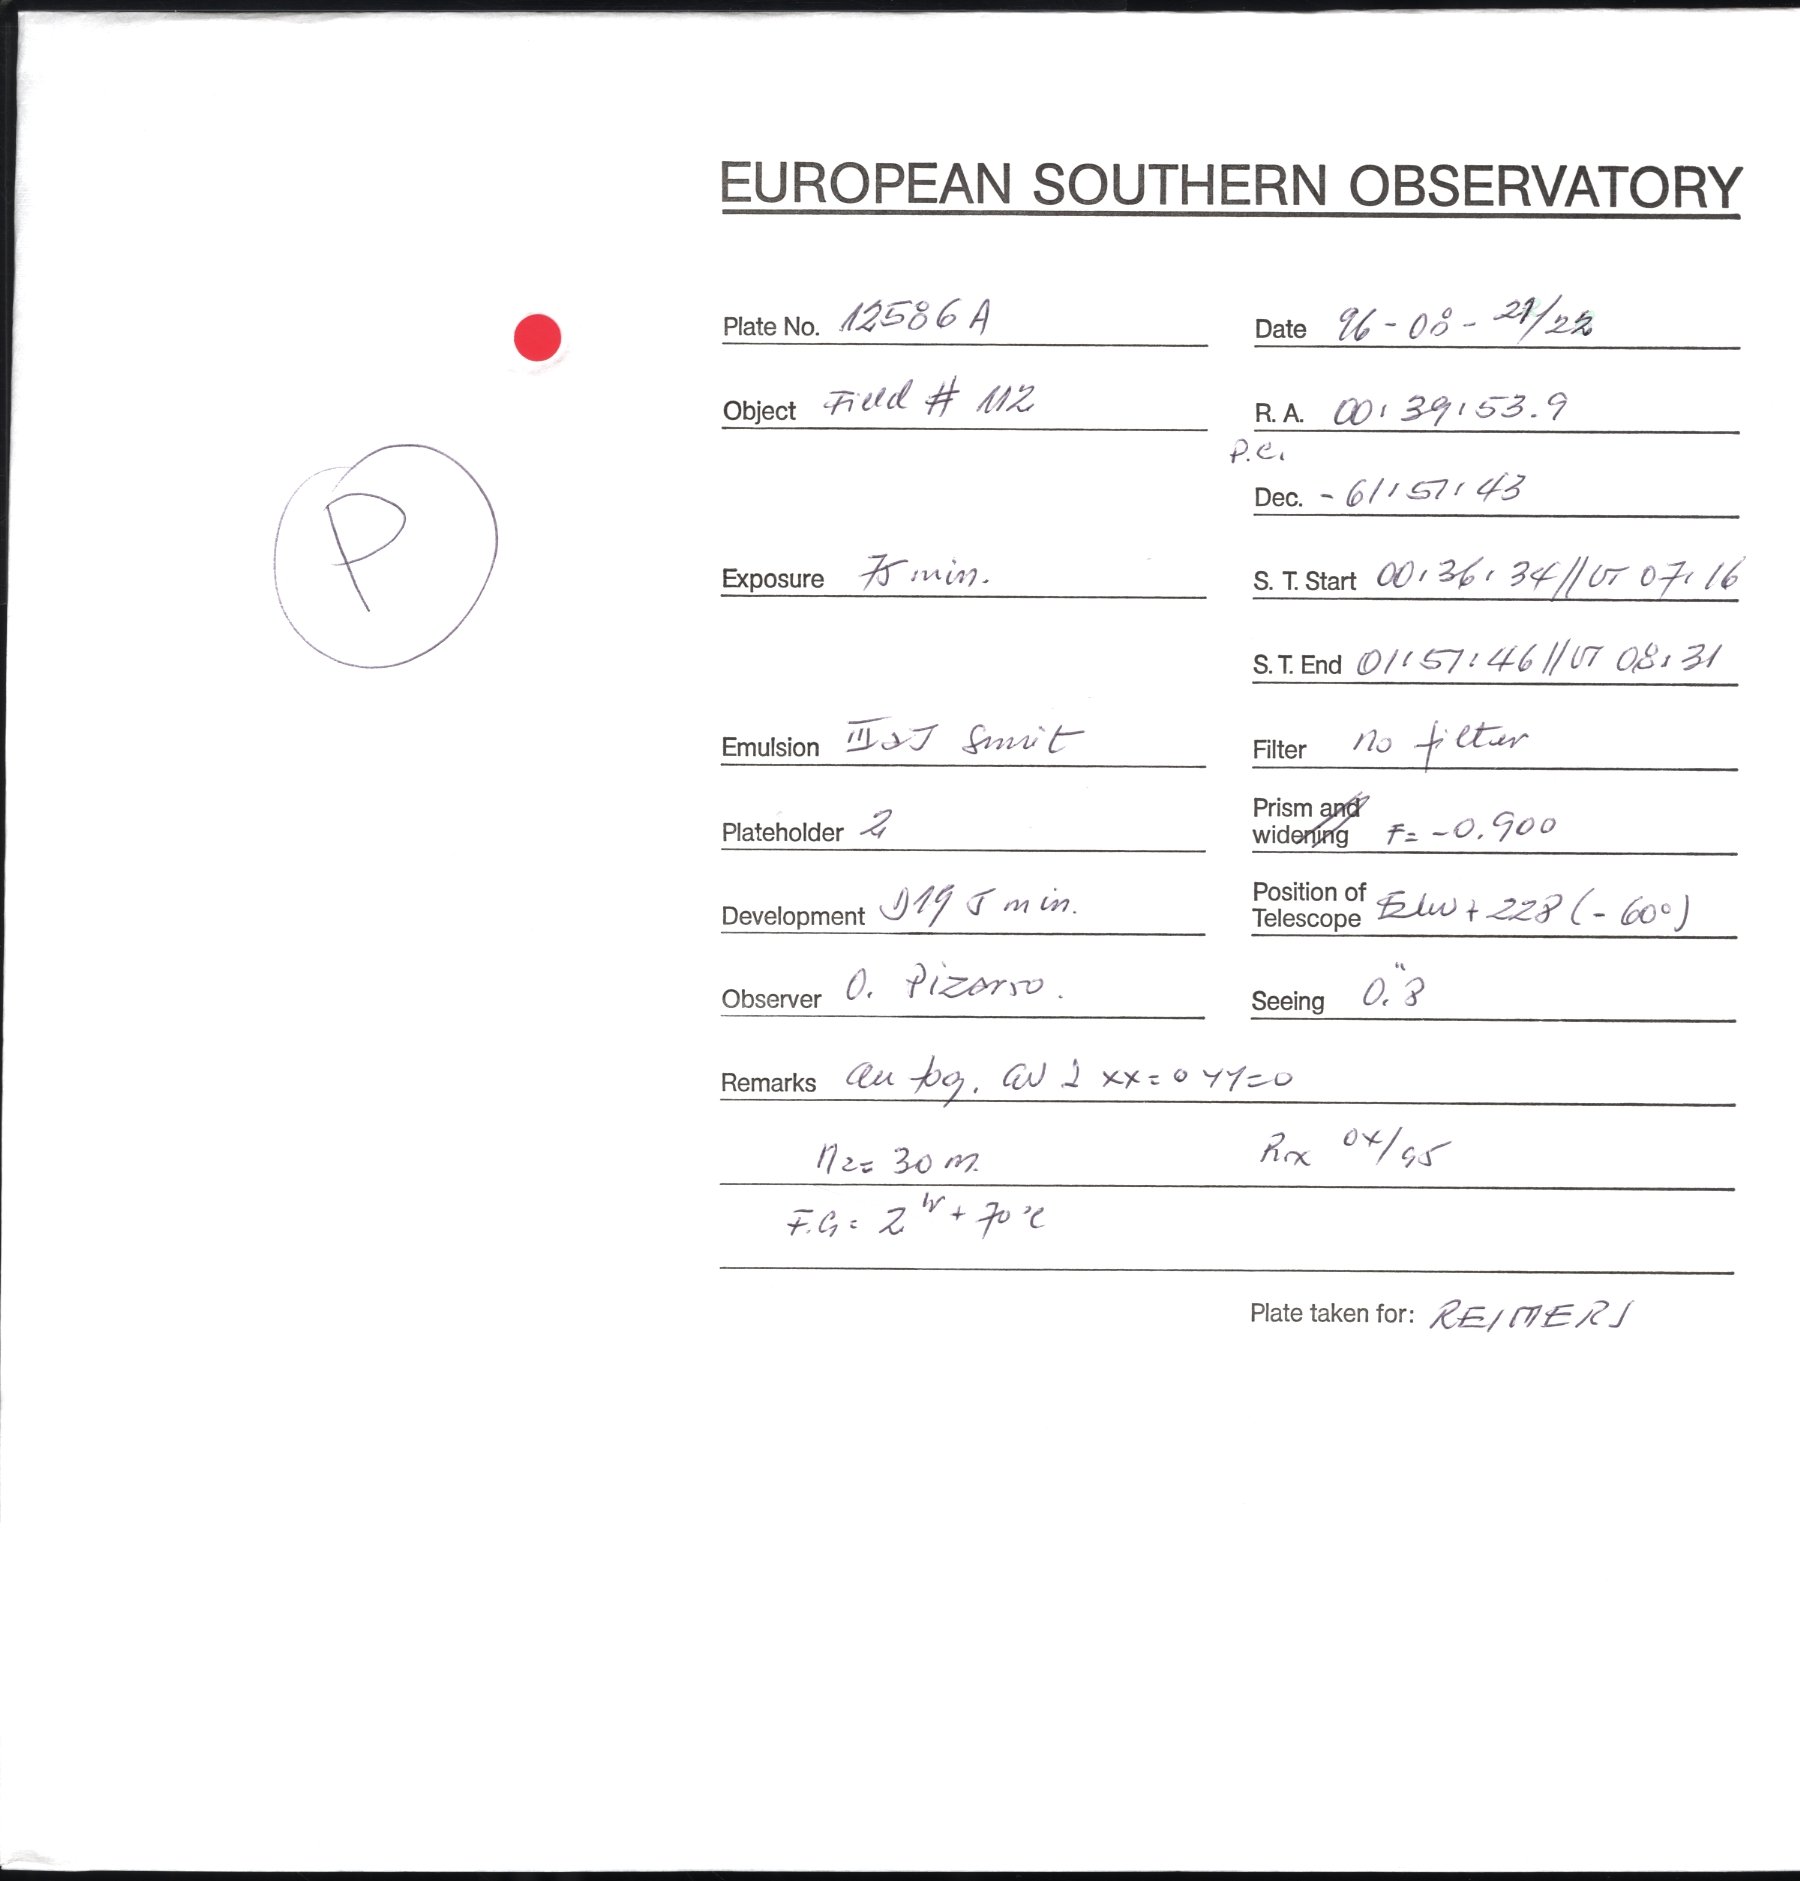 EUROPEAN SOUTHERN OBSERVATORY
Plate No. 12586 A
Date 96-08-21/22
Object Field # 112
R. A. 00:39:53.9
P.C.
Dec. -61:51:43
P
Exposure 75 min.
S. T. Start 00:36:34//UT 07:16
S. T. End 01:51:46//UT 08:31
Emulsion IIIaJ
Filter no filter
Plateholder 2
Prism and widening F= -0.900
Development D19 5 min.
Position of Telescope +228 (-60°)
Observer O. Pizarro.
Seeing 0."8
Remarks xx=0 YY=0
N2= 30 m.
F.G= 2 + 70°C
Plate taken for: REIMERS